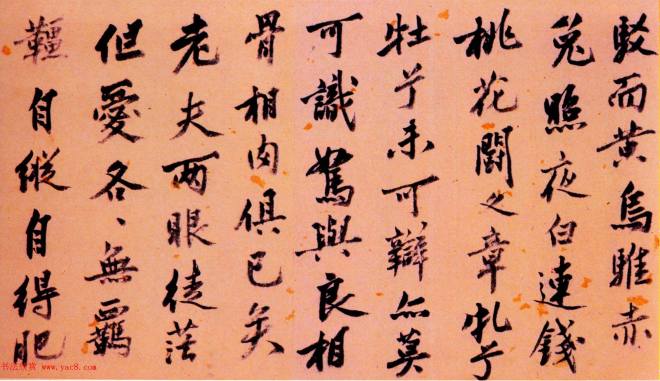 駁而黄烏騅赤
兔照夜白連錢
桃花闘文章牝兮
牡兮未可辯亦莫
可識駑與良相
骨相肉俱已矣
老夫兩眼徒茫
但愛各、無羈
韁自縱自得肥
书法欣赏 www.yac8.com